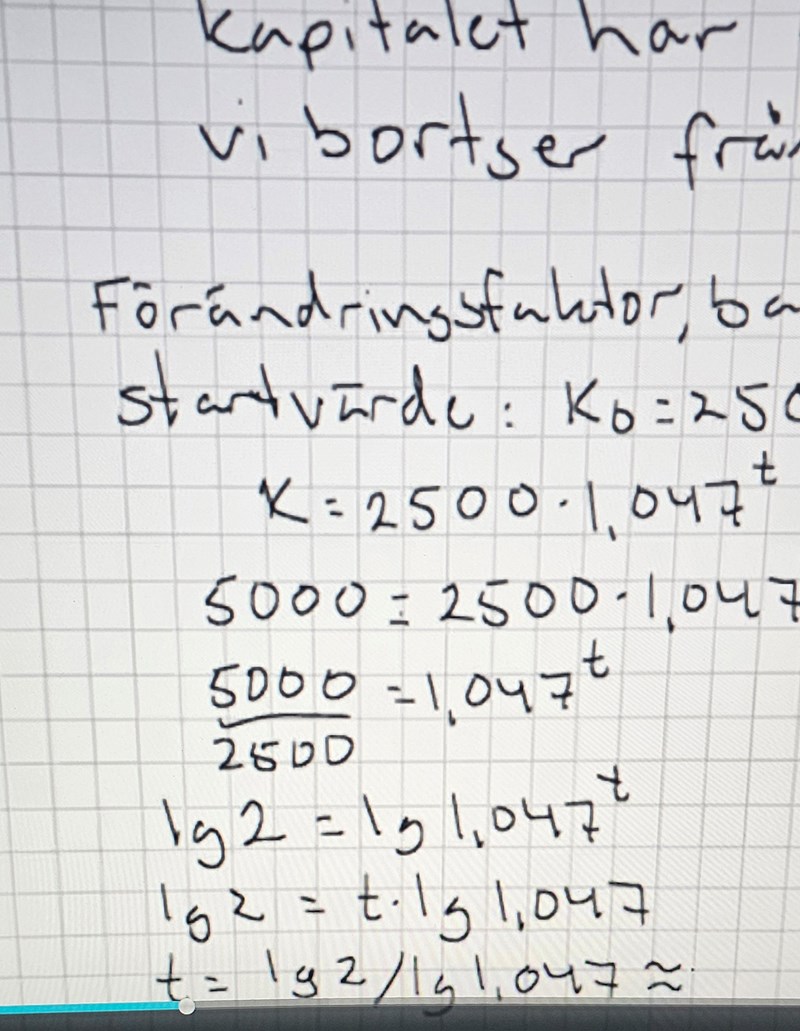 Kapitalet har
vi bortser från
Förändringsfaktor, ba
startvärde: K₀ = 250
K = 2500 · 1,047ᵗ
5000 = 2500 · 1,047
5000/2500 = 1,047ᵗ
lg 2 = lg 1,047ᵗ
lg 2 = t · lg 1,047
t = lg 2 / lg 1,047 ≈